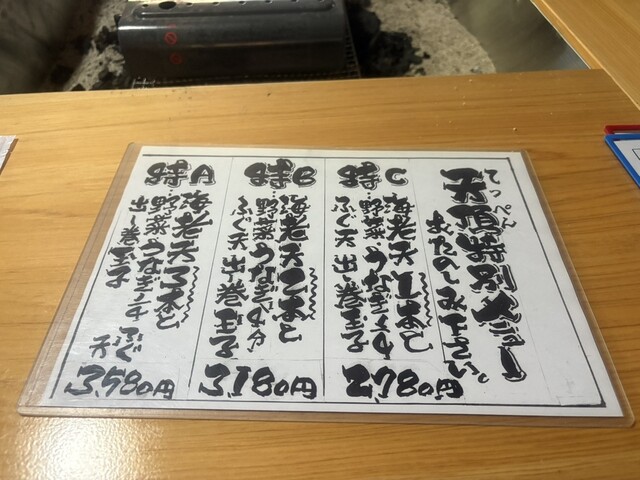 天頂特別メニュー
てっぺん
おたのしみ下さい。
特C
海老天1本と
野菜・うなぎ1/4
ふぐ天 出し巻玉子
2,780円
特B
海老天2本と
野菜・うなぎ1/4
ふぐ天 出し巻玉子
3,180円
特A
海老天3本と
野菜・うなぎ1/4
出し巻玉子 ふぐ天
3,580円